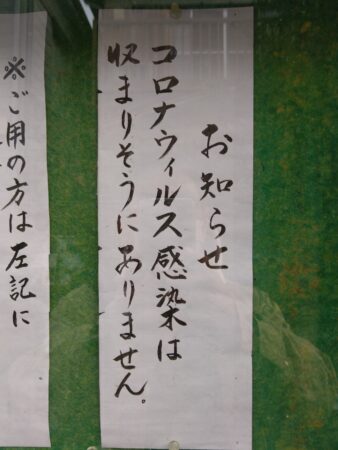 お知らせ
コロナウィルス感染は
収まりそうにありません。
※ご用の方は左記に